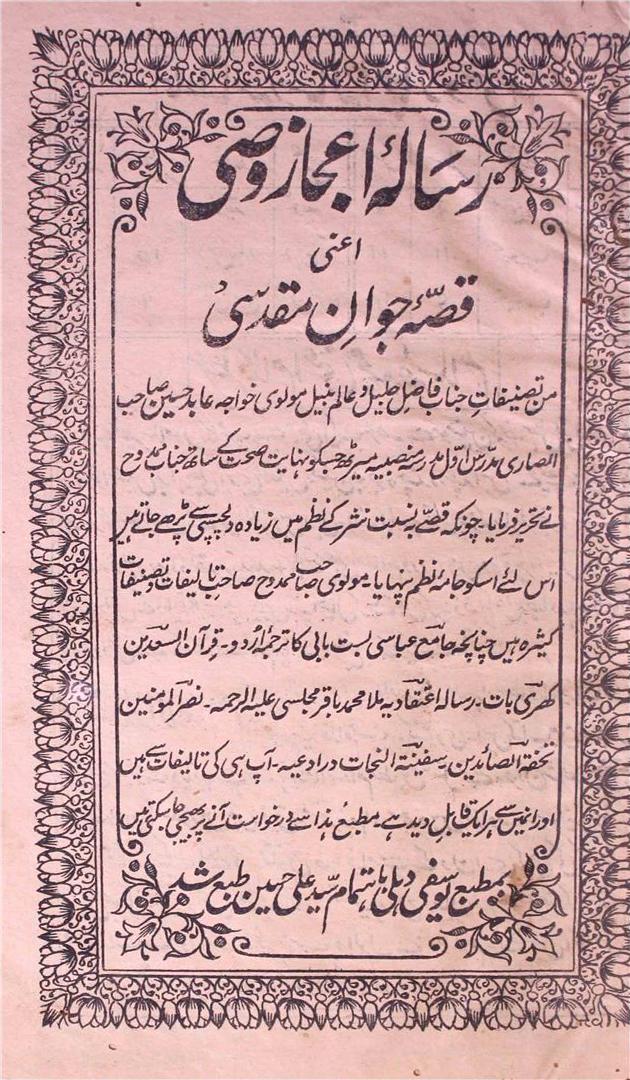 رسالۂ اعجاز وصی
اعنی
قصّۂ جوانِ مقدسی
من تصنیفاتِ جناب فاضل جلیل و عالم نبیل مولوی خواجہ عابد حسین صاحب
انصاری مدرس اوّل مدرسہ منصبیہ میرٹھ جسکو نہایت صحت کے ساتھ جناب ممدوح
نے تحریر فرمایا۔ چونکہ قصّے بہ نسبت نثر کے نظم میں زیادہ دلچسپی سے پڑھے جاتے ہیں
اس لئے اسکو جامۂ نظم پنہایا۔ مولوی صاحب ممدوح صاحبِ تالیفات و تصنیفات
کثیرہ ہیں چنانچہ جامع عباسی بست بابی کا ترجمہ اُردو۔ قرآن السعدین
کھری بات۔ رسالہ اعتقادیہ ملا محمد باقر مجلسی علیہ الرحمہ۔ نصر المؤمنین
تحفۃ الصائدین۔ سفینۃ النجات در ادعیہ۔ آپ ہی کی تالیفات سے ہیں
اور انمیں سے ہر ایک قابلِ دید ہے۔ مطبع ہذا سے درخواست آنے پر بھیجی جا سکتی ہیں
بمطبع یوسفی دہلی باہتمام سیّد علی حسین طبع شد